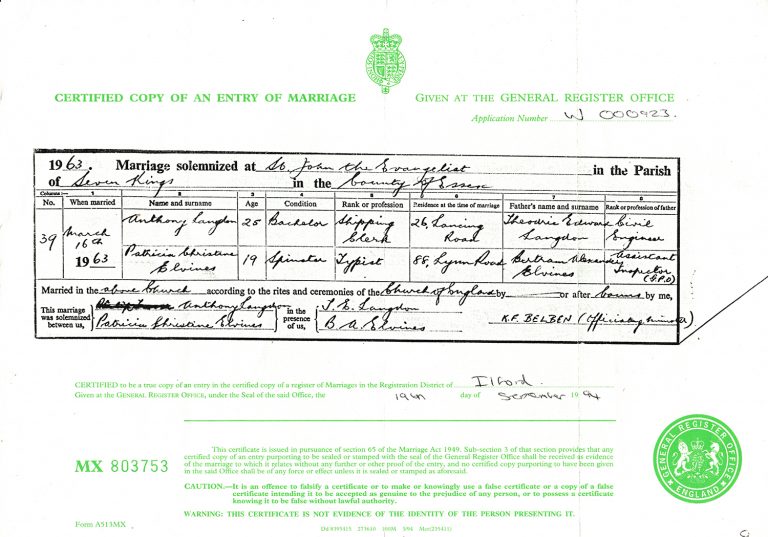 CERTIFIED COPY OF AN ENTRY OF MARRIAGE
GIVEN AT THE GENERAL REGISTER OFFICE
Application Number W 000923.
1963. Marriage solemnized at St. John the Evangelist in the Parish
of Seven Kings in the County of Essex
Columns:— 1 2 3 4 5 6 7 8
No. When married Name and surname Age Condition Rank or profession Residence at the time of marriage Father's name and surname Rank or profession of father
39 March 16th 1963
Anthony Langdon 25 Bachelor Shipping Clerk 26, Lansing Road Theodric Edward Langdon Civil Engineer
Patricia Christine Elvines 19 Spinster Typist 88, Lynn Road Bertram Alexander Elvines Assistant Inspector (G.P.O)
Married in the above Church according to the rites and ceremonies of the Church of England by or after banns by me,
This marriage was solemnized between us, Anthony Langdon
Patricia Christine Elvines
in the presence of us, T. E. Langdon
B A Elvines
K.F. BELBEN (Officiating Minister)
CERTIFIED to be a true copy of an entry in the certified copy of a register of Marriages in the Registration District of Ilford.
Given at the GENERAL REGISTER OFFICE, under the Seal of the said Office, the 19th day of September 1994
MX 803753
This certificate is issued in pursuance of section 65 of the Marriage Act 1949. Sub-section 3 of that section provides that any
certified copy of an entry purporting to be sealed or stamped with the seal of the General Register Office shall be received as evidence
of the marriage to which it relates without any further or other proof of the entry, and no certified copy purporting to have been given
in the said Office shall be of any force or effect unless it is sealed or stamped as aforesaid.
CAUTION.—It is an offence to falsify a certificate or to make or knowingly use a false certificate or a copy of a false
certificate intending it to be accepted as genuine to the prejudice of any person, or to possess a certificate
knowing it to be false without lawful authority.
WARNING: THIS CERTIFICATE IS NOT EVIDENCE OF THE IDENTITY OF THE PERSON PRESENTING IT.
GENERAL REGISTER OFFICE
ENGLAND
Form A513MX